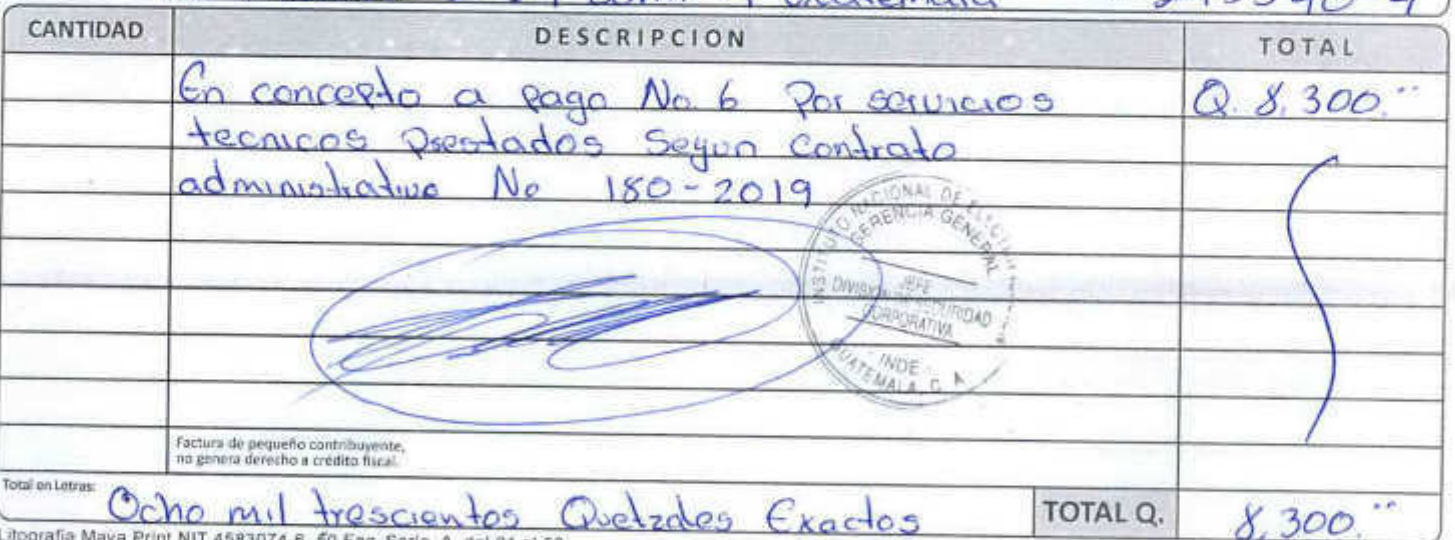 Guatemala
CANTIDAD DESCRIPCION TOTAL
En concepto a pago No. 6 Por servicios Q. 8,300.
tecnicos Prestados Segun Contrato
administrativo No 180-2019
INSTITUTO NACIONAL DE
GERENCIA GENERAL
JEFE
DIVISION DE SEGURIDAD
CORPORATIVA
INDE
GUATEMALA, C. A.
Factura de pequeño contribuyente,
no genera derecho a crédito fiscal.
Total en Letras: Ocho mil trescientos Quetzales Exactos TOTAL Q. 8,300.
Litografia Maya Print NIT 4583074-6